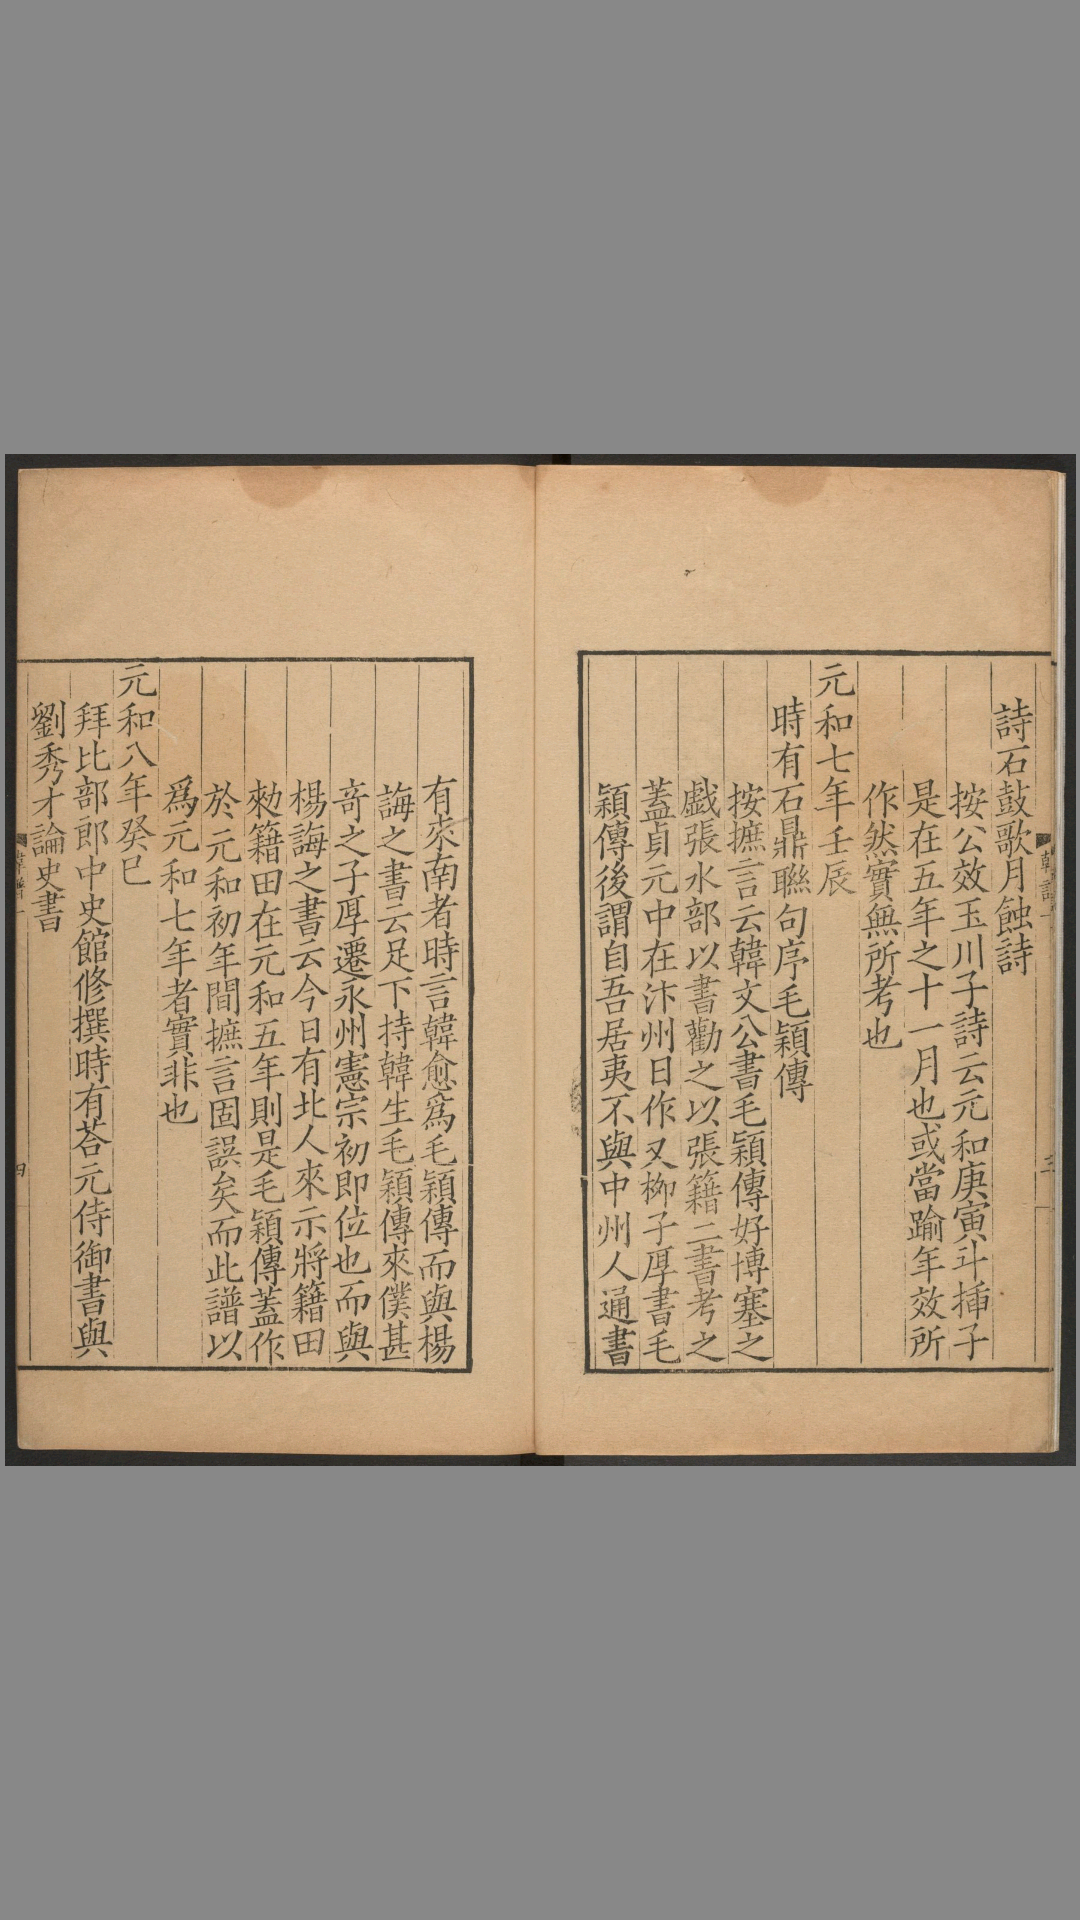 詩石鼓歌月蝕詩
按公效玉川子詩云元和庚寅斗揷子
是在五年之十一月也或當踰年效所
作然實無所考也
元和七年壬辰
時有石鼎聯句序毛穎傳
按摭言云韓文公書毛穎傳好博塞之
戲張水部以書勸之以張籍二書考之
蓋貞元中在汴州日作又栁子厚書毛
穎傳後謂自吾居夷不與中州人通書
有來南者時言韓愈爲毛穎傳而與楊
誨之書云足下持韓生毛穎傳來僕甚
竒之子厚遷永州憲宗初即位也而與
楊誨之書云今日有北人來示將籍田
勑籍田在元和五年則是毛穎傳蓋作
於元和初年間摭言固誤矣而此譜以
爲元和七年者實非也
元和八年癸巳
拜比部郎中史館修撰時有荅元侍御書與
劉秀才論史書
四